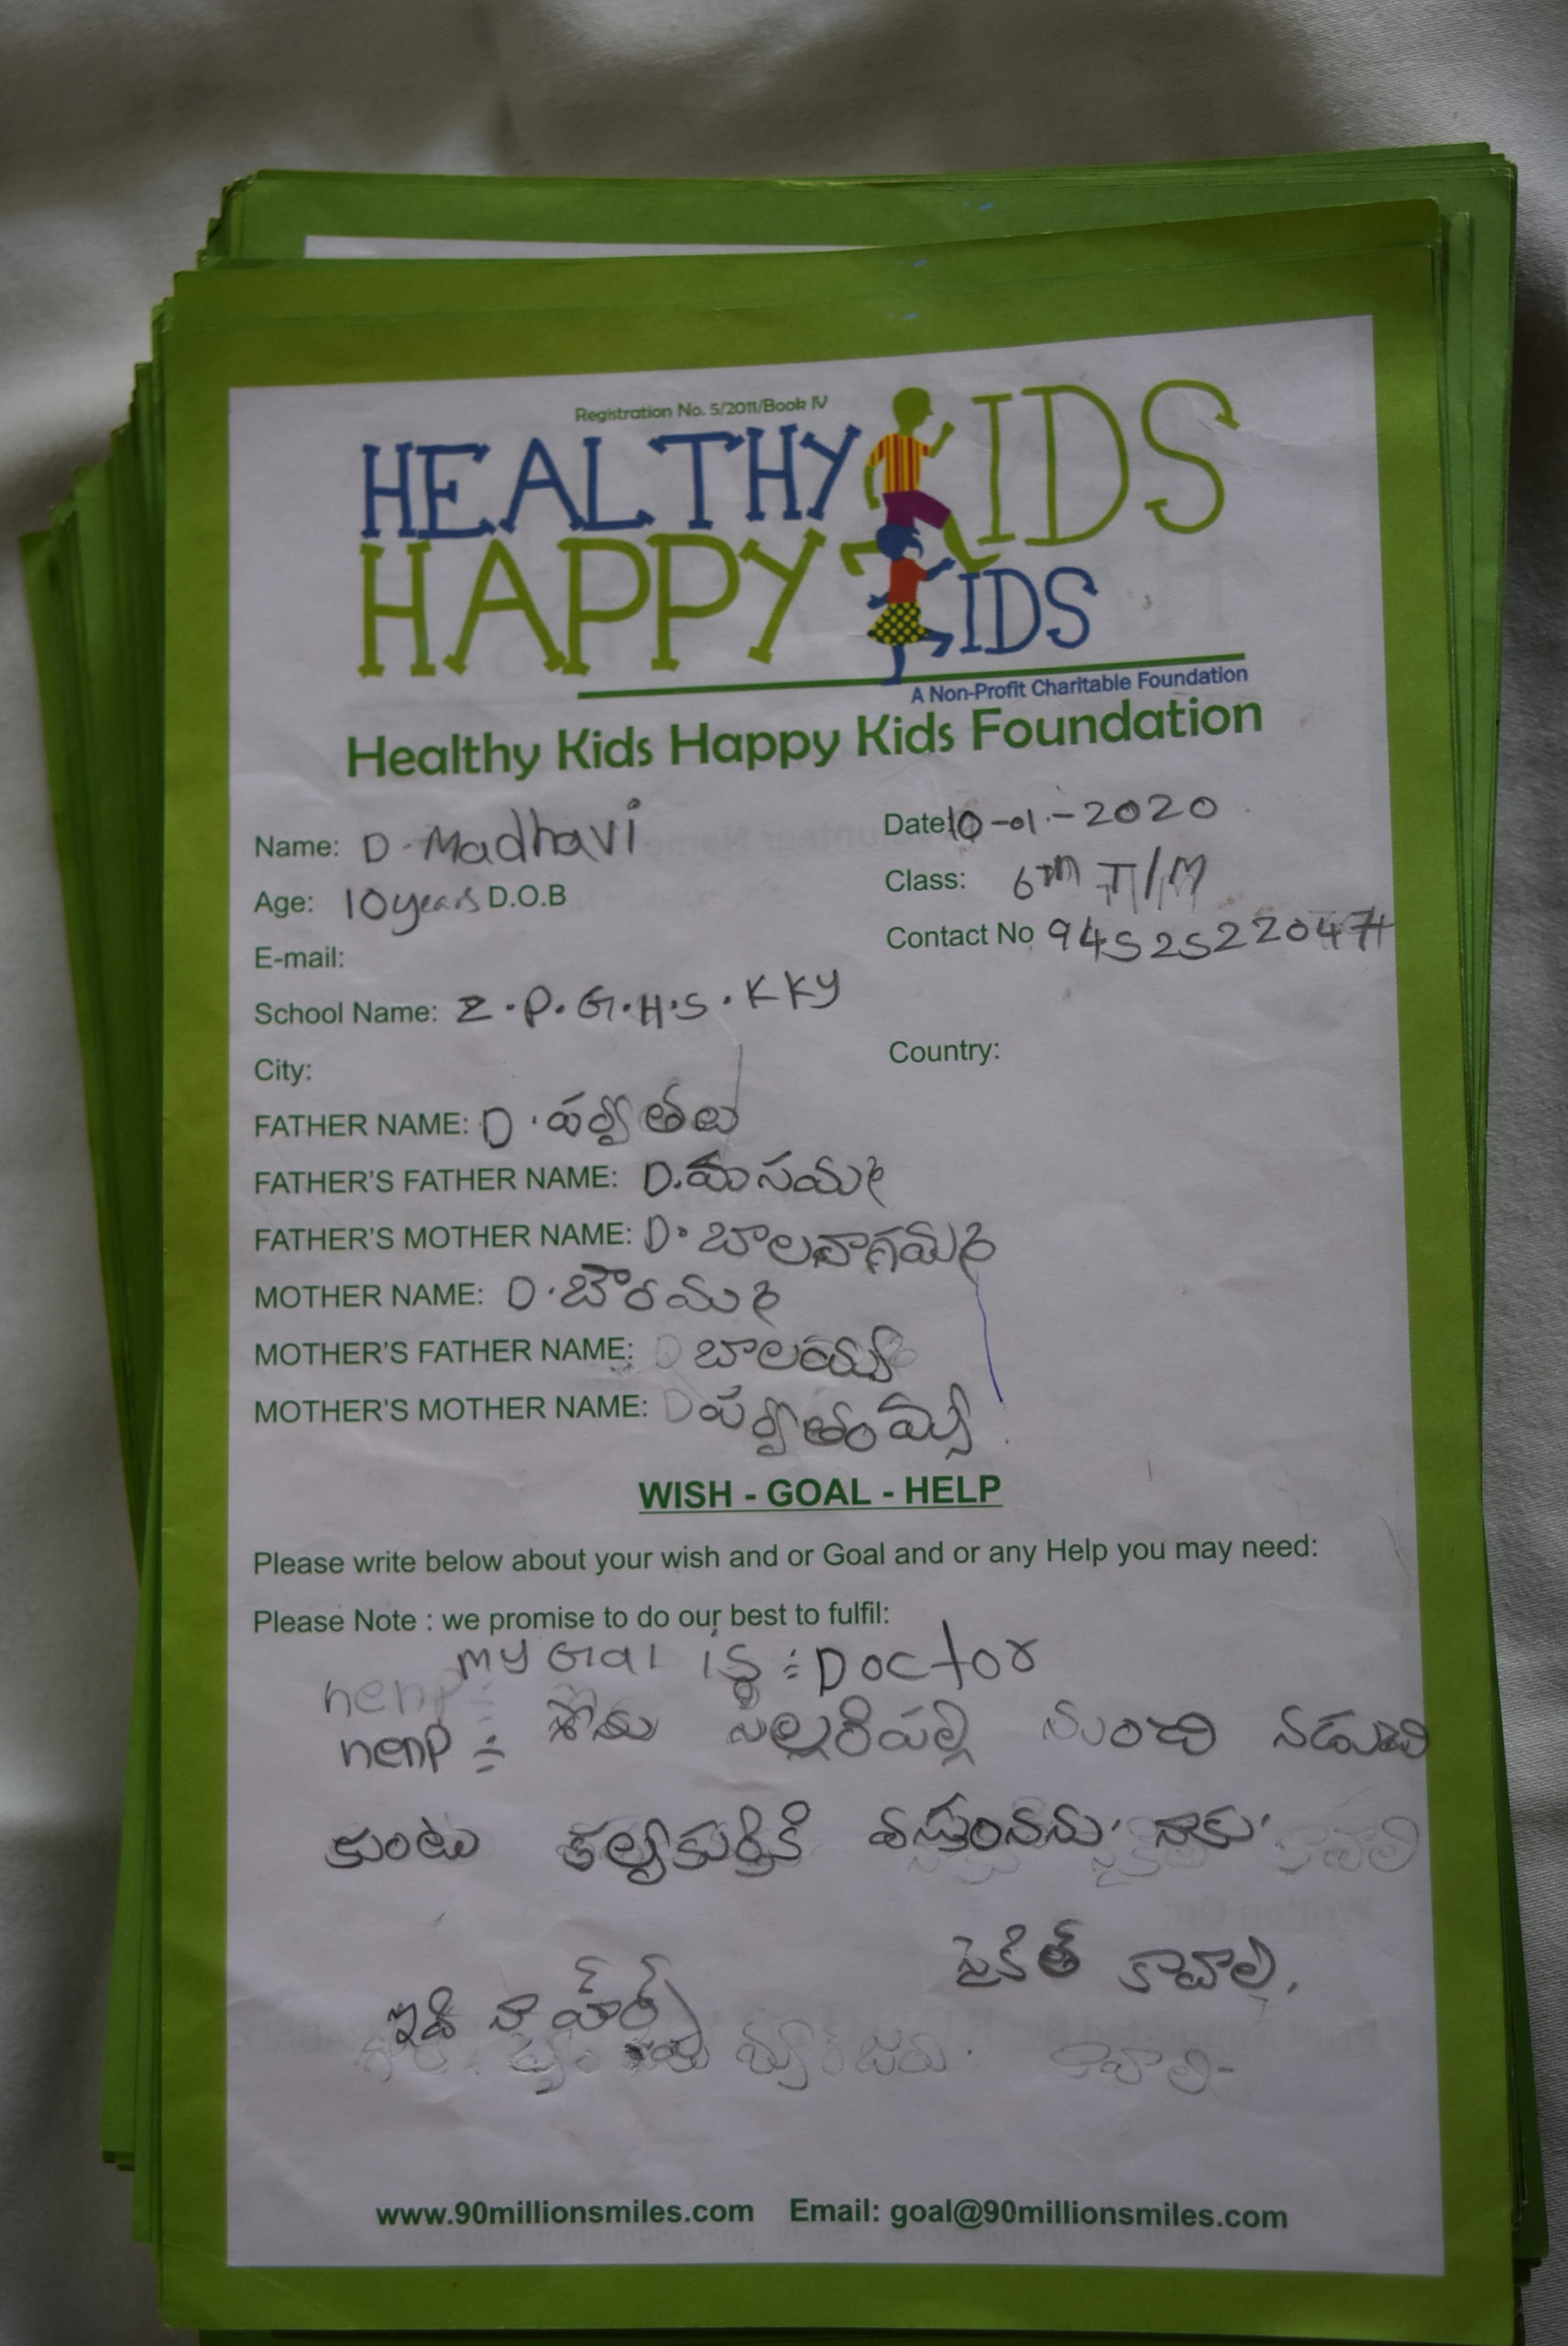 Registration No. 5/2011/Book IV
HEALTHY KIDS
HAPPY KIDS
A Non-Profit Charitable Foundation
Healthy Kids Happy Kids Foundation
Name: D. Madhavi
Date: 10-01-2020
Age: 10 years D.O.B
Class: 6th T/M
E-mail:
Contact No
School Name: Z.P.G.H.S.KKY
City:
Country:
FATHER NAME: D. పర్వతలు
FATHER'S FATHER NAME: D.
FATHER'S MOTHER NAME: D. బాలనాగమ్మ
MOTHER NAME: D. బౌరమ్మ
MOTHER'S FATHER NAME: D బాలయ్య
MOTHER'S MOTHER NAME: D
WISH - GOAL - HELP
Please write below about your wish and or Goal and or any Help you may need:
Please Note : we promise to do our best to fulfil:
my Gial is : Doctor
henp
henp ÷ నుంచి
కుంటు నాకు
కావాలి.
ఇది నా
కావాలి
www.90millionsmiles.com Email: goal@90millionsmiles.com